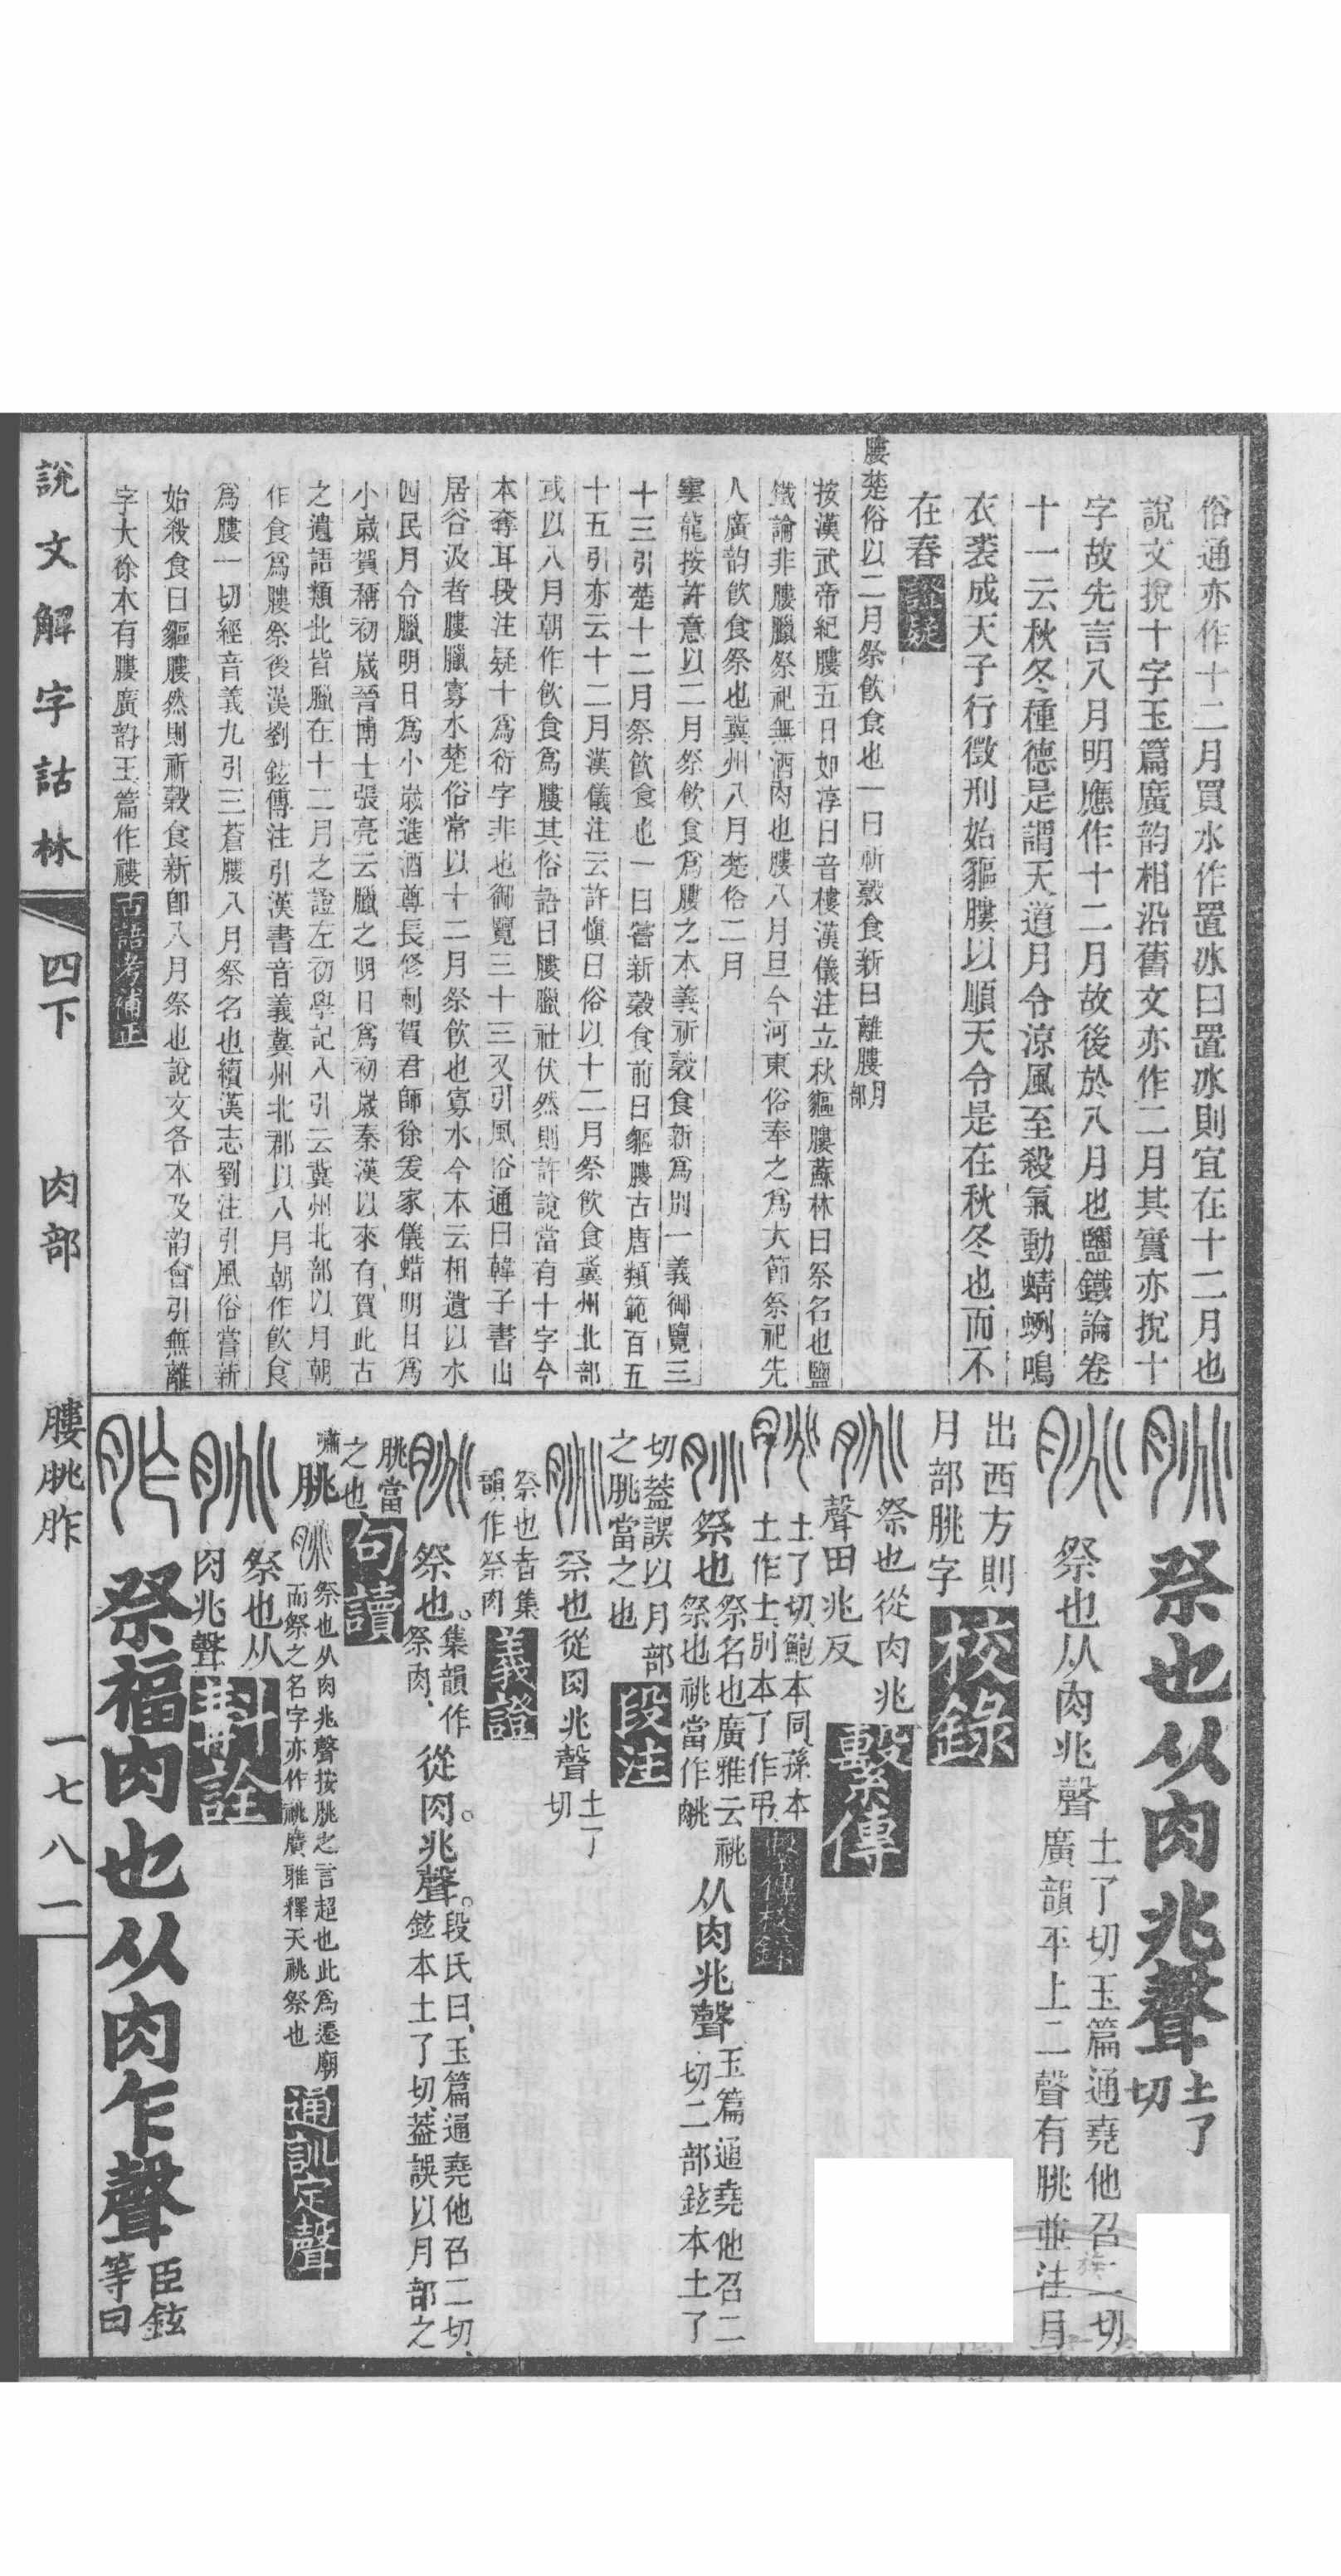 俗通亦作十二月買水作置冰曰置冰則宜在十二月也
說文挩十字玉篇廣韵相沿舊文亦作二月其實亦挩十
字故先言八月明應作十二月故後於八月也鹽鐵論卷
十一云秋冬種德是謂天道月令涼風至殺氣動蜻蛚鳴
衣裘成天子行微刑始貙膢以順天令是在秋冬也而不
在春證疑
膢楚俗以二月祭飲食也一曰祈穀食新曰離膢肉部
按漢武帝紀膢五日如淳曰音樓漢儀注立秋貙膢蘇林曰祭名也鹽
鐵論非膢臘祭祀無酒肉也膢八月旦今河東俗奉之為大節祭祀先
人廣韵飲食祭也冀州八月楚俗二月
雲龍按許意以二月祭飲食為膢之本義祈穀食新為別一義御覽三
十三引楚十二月祭飲食也一曰嘗新穀食前曰貙膢古唐類範百五
十五引亦云十二月漢儀注云許慎曰俗以十二月祭飲食冀州北部
或以八月朝作飲食為膢其俗語曰膢臘社伏然則許說當有十字今
本奪耳段注疑十為衍字非也御覽三十三又引風俗通曰韓子書山
居谷汲者膢臘寡水楚俗常以十二月祭飲也寡水今本云相遺以水
四民月令臘明日為小歲進酒尊長修刺賀君師徐爰家儀蜡明日為
小歲賀稱初歲晉博士張亮云臘之明日為初歲秦漢以來有賀此古
之遺語類此皆臘在十二月之證左初學記八引云冀州北部以月朝
作食為膢祭後漢劉鉉傳注引漢書音義冀州北郡以八月朝作飲食
為膢一切經音義九引三蒼膢八月祭名也續漢志劉注引風俗嘗新
始殺食曰貙膢然則祈穀食新卽八月祭也說文各本及韵會引無離
字大徐本有膢廣韵玉篇作䄛古語考補正
祭也从肉兆聲土了切
祭也从肉兆聲土了切玉篇通堯他召二切廣韻平上二聲有脁並注月
出西方則
月部朓字校錄
祭也從肉兆
聲田兆反繫傳
土了切鮑本同孫本
土作士別本了作弔繫傳校錄
祭也祭名也廣雅云祧祭也祧當作䠷从肉兆聲玉篇通堯他召二切二部鉉本土了
切葢誤以月部
之朓當之也段注
祭也從肉兆聲土了切
祭也者集
韻作祭肉義證
祭也。集韻作祭肉、從肉。兆聲。段氏曰、玉篇通堯他召二切、鉉本土了切、葢誤以月部之
朓當
之也、句讀
嘯脁祭也从肉兆聲按脁之言超也此為遷廟而祭之名字亦作祧廣雅釋天祧祭也通訓定聲
祭也从
肉兆聲斠詮
祭福肉也从肉乍聲臣鉉等曰
說文解字詁林 四下 肉部 膢脁胙 一七八一